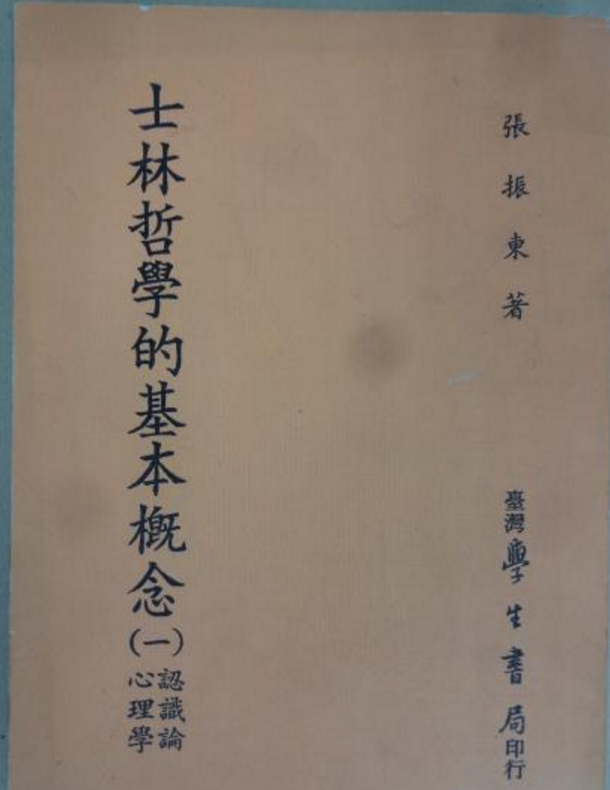 張振東著
臺灣學生書局印行
士林哲學的基本概念(一)
認識論
心理學